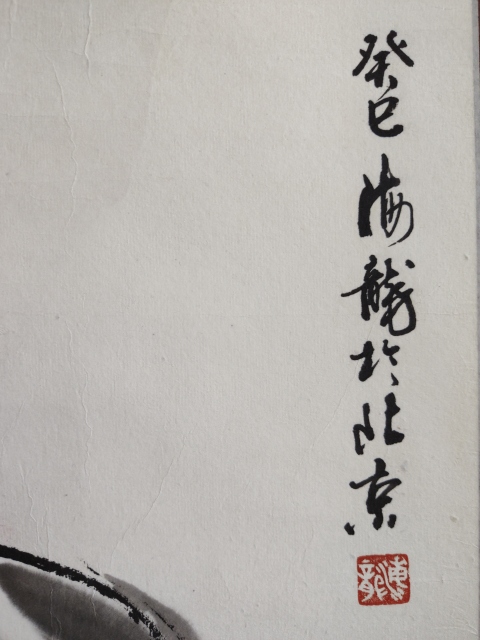 癸巳海龍於北京